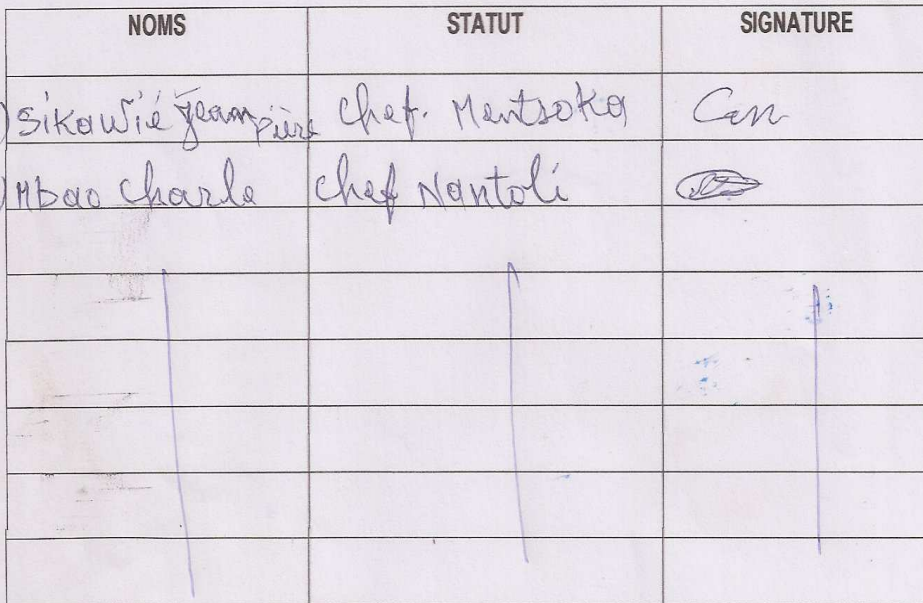 NOMS STATUT SIGNATURE
) Sikawié Jean Pière Chef. Mentsoka
) Mbao Charle Chef Nantoli